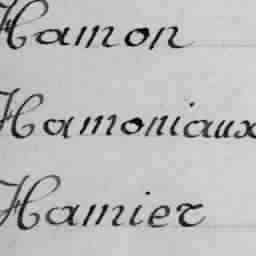 Hamon
Hamoniaux
Hamier